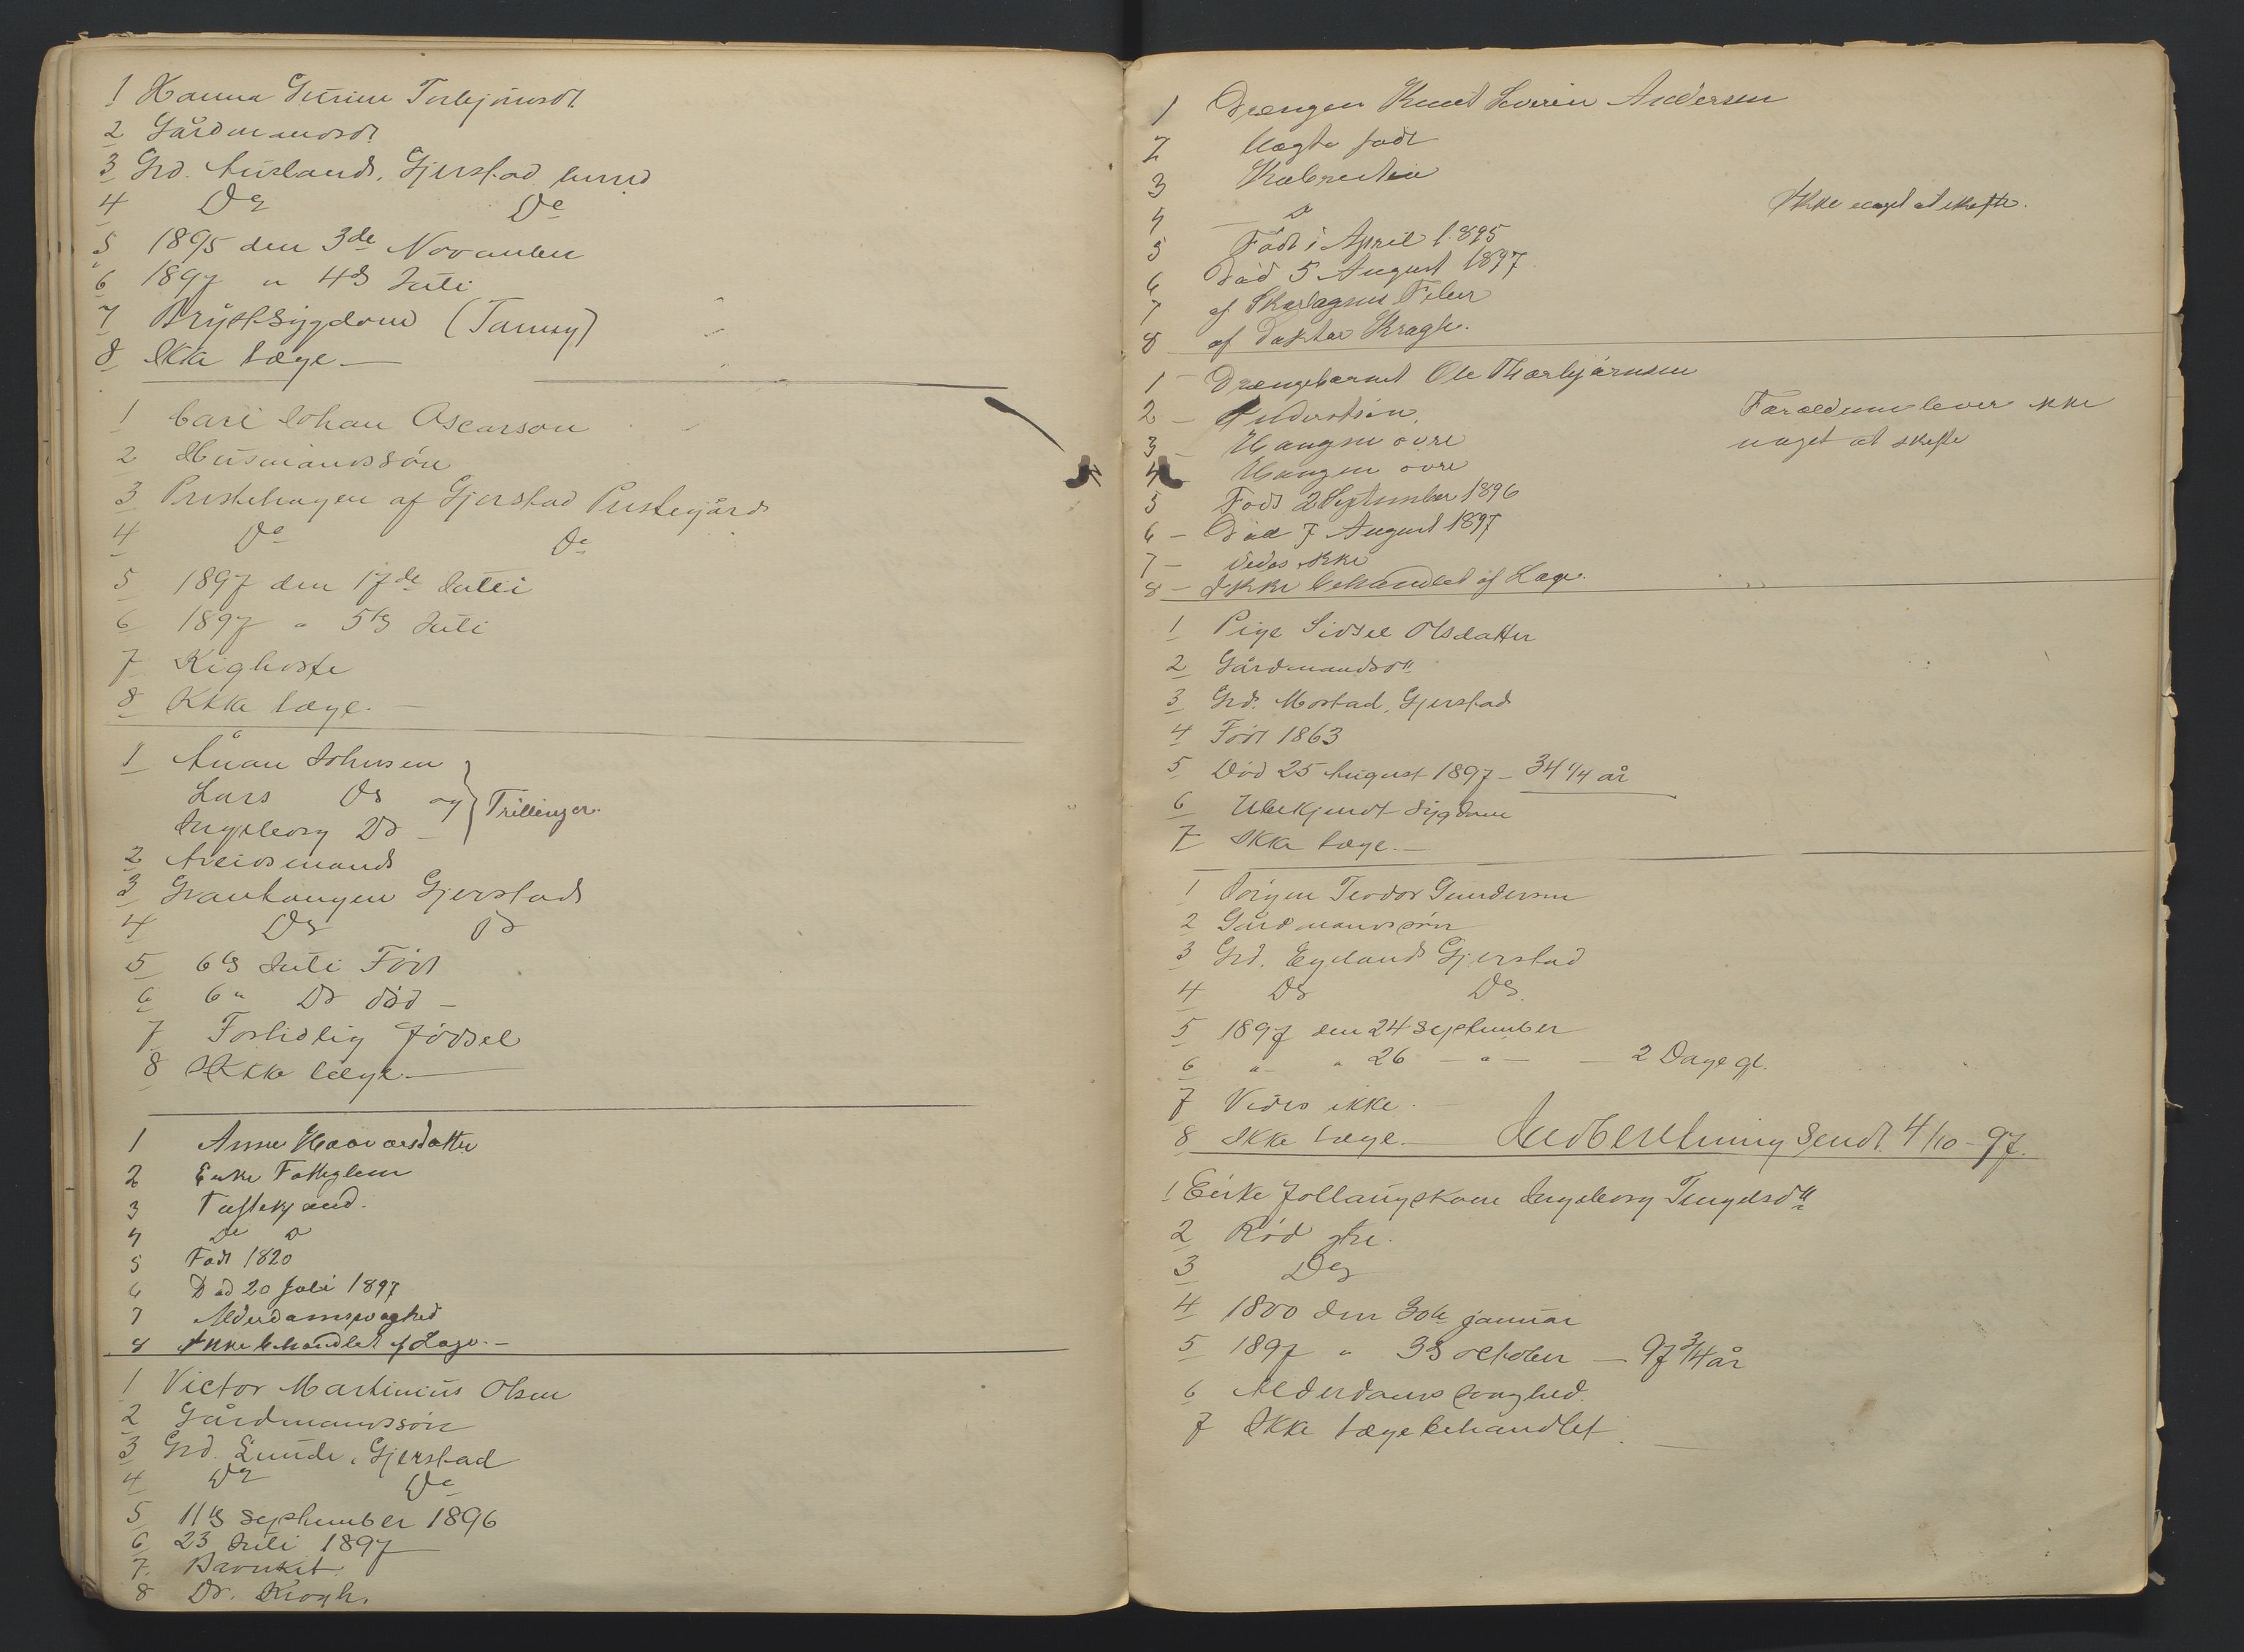 1 Hanna Gurine Torbjörnsdt
2 Gårdmandsdt
3 Grd. Ausland, Gjerstad
4 Do Do
5 1895 den 3de November
6 1897 " 4de Juli
7 Brystsygdom (Tanny)
8 Ikke læge. —
1 Carl Johan Oscarson
2 Husmandssön
3 Prestehagen af Gjerstad Prestegård
4 Do Do
5 1897 den 17de Juli
6 1897 " 5te Juli
7 Kighoste
8 Ikke læge. —
1 Ånan Johnsen
Lars Do og Trillinger.
Ingeborg Do —
2 Areidsmand
3 Granhaugen Gjerstad
4 Do Do
5 6te Juli Födt
6 6 " Do död —
7 Fortidlig födsel
8 Ikke læge —
1 Anne Haavorsdatter
2 Enke Fattiglem
3 Tveitkjand.
4 Do D
5 Födt 1820
6 Död 20 Juli 1897
7 Alderdomssvaghed
8 Ikke behandlet af Læge. —
1 Victor Martinius Olsen
2 Gårdmandssön
3 Grd. Lunde, Gjerstad
4 Do Do
5 11te September 1896
6 23 Juli 1897
7. Bronkit
8 Dr. Krogh.
1 Drengen Knud Severin Andersen
2 Uægte födt
3
4 — D
Ikke noget at skefte.
5 Födt i April 1895
6 Död 5 August 1897
7 af Skarlagens Feber
8 af Doktor Kragh.
1 — Drengebarnet Ole Thorbjörnsen
2 —
Forældrene lever ikke
3 Haugen övre
noget at skefte
4 Haugen övre
5 Födt 2 September 1896
6 — Död 7 August 1897
7 — Vides ikke
8 — Ikke behandlet af Læge.
1 Pige Sidsel Olsdatter
2 Gårdmandsdtr
3 Grd. Mostad, Gjerstad
4 Födt 1863
5 Död 25 August 1897 — 34 1/4 år
6 Ubekjendt Sygdom
7 Ikke læge. —
1 Jörgen Teodor Gundersen
2 Gårdmandssön
3 Grd. Eyland Gjerstad
4 Do Do.
5 1897 den 24 September
6 " " 26 — " — — 2 Dage gl.
7 Vides ikke.
8 Ikke læge. — Indberetning Sendt 4/10 – 97.
1 Enke Ingeborg Tengelsdtr
2 Röd
3 Do
4 1800 den 30te januar
5 1897 " 3de october — 97 3/4 år
6 Alderdoms svaghed
7 Ikke lægebehandlet. —